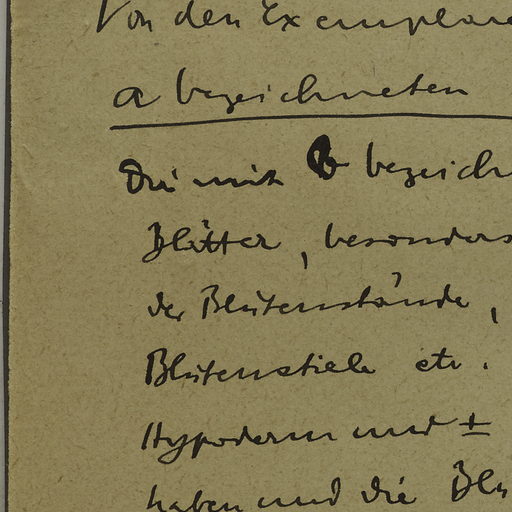 Von den Exemplare
a bezeichneten
Die mit b bezeich
Blätter, besonders
der Blütenstände,
Blütenstiele etc.
Hypoderm und ±
haben und die Blü